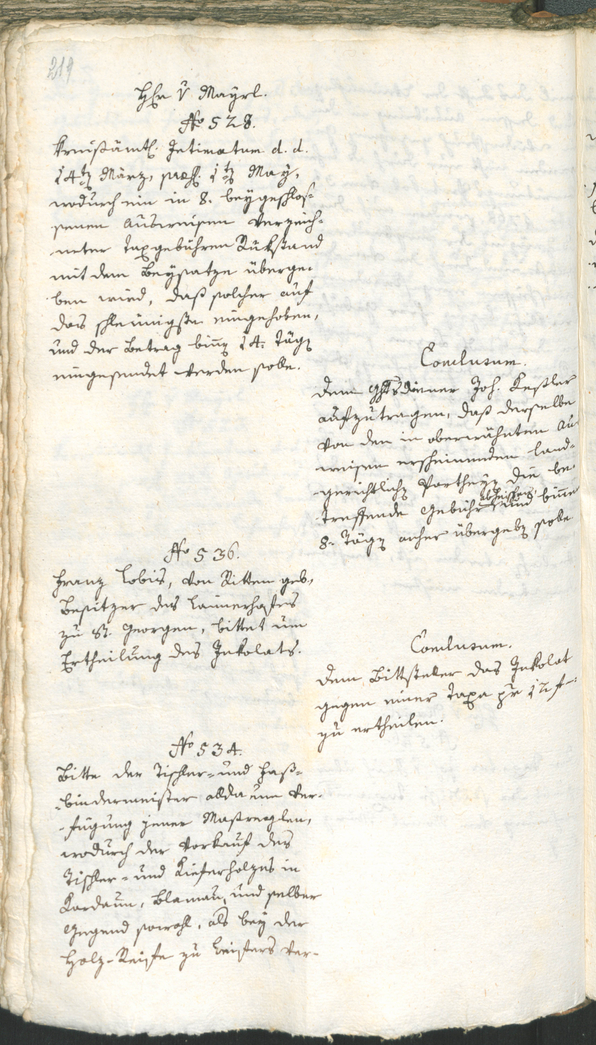 219
Hhn v Mayrl.
No 528.
Kreisämtl. Intimatum d. d.
14ten März, praes. 1ten May,
wodurch ein in 8. beygeschlos-
senen Ausweisen verzeich-
neter Taxgebühren Rükstand
mit dem Beysatze überge-
ben wird, daß solcher auf
das schleinigste eingehoben,
und der Betrag binnen 14. Tägen
eingesendet werden solle.
Conclusum.
Dem Ghtsdiener Joh. Kestler
aufzutragen, daß derselbe
von den in oberwähnten Au
weisen erscheinenden land-
gerichtlichen Partheyen die be-
treffende Gebühren und binnen
8. Tägen anher übergeben solle
No 536.
Franz Lobis, von Ritten geb,
Besitzer des Lainerhofes
zu St. Georgen, bittet um
Ertheilung des Inkolats.
Conclusum.
Dem Bittsteller das Inkolat
gegen einer Taxa pr 12 f.
zu ertheilen.
No 534.
Bitte der Tischler- und Faß-
bindermeister allda um Ver-
fügung jener Maßreglen,
wodurch der Vorkauf des
Tischler- und Kieferholzes in
Kardaun, Blamau, und selber
Gegend sowohl, als bey der
Holz-Reife zu Leifers ver-